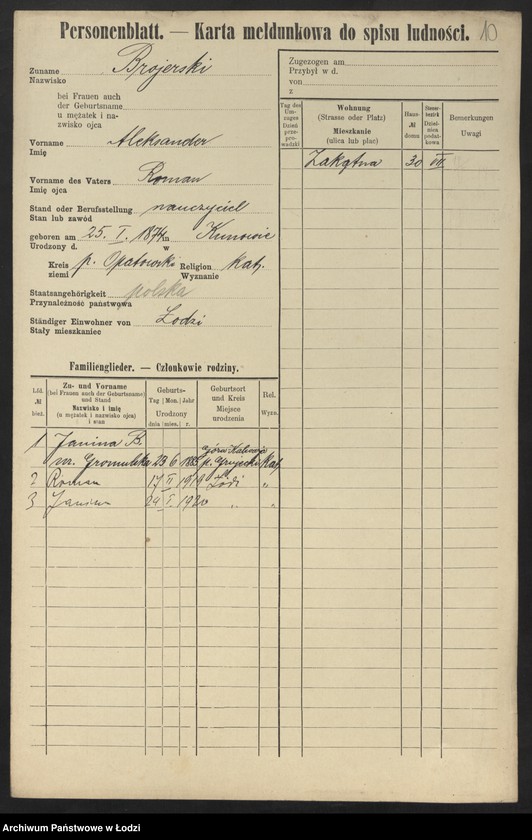 Personenblatt. — Karta meldunkowa do spisu ludności. 10
Zuname Brojerski
Nazwisko
bei Frauen auch
der Geburtsname
u mężatek i na-
zwisko ojca
Vorname Aleksander
Imię
Vorname des Vaters Roman
Imię ojca
Stand oder Berufsstellung nauczyciel
Stan lub zawód
geboren am 25. I. 1874 in Kunowie
Urodzony d. w
Kreis p. Opatowski Religion kat.
ziemi Wyznanie
Staatsangehörigkeit polska
Przynależność państwowa
Ständiger Einwohner von Łodzi
Stały mieszkaniec
Zugezogen am
Przybył w d.
von
z
Tag des Um-zuges Dzień prze-pro-wadzki
Wohnung
(Strasse oder Platz)
Mieszkanie
(ulica lub plac)
Haus-
№
domu
Steuer-
bezirk
Dziel-
nica
podat-
kowa
Bemerkungen
Uwagi
Zakątna 30 VII
Familienglieder. — Członkowie rodziny.
Lfd.
№
bież.
Zu- und Vorname
(bei Frauen auch der Geburtsname)
und Stand
Nazwisko i imię
(u mężatek i nazwisko ojca)
i stan
Geburts-
Tag Mon. Jahr
Urodzony
dnia mies. r.
Geburtsort
und Kreis
Miejsce
urodzenia
Rel.
Wyzn.
1 Janina B.
Góra Kalwarja
23 6 1883 p. Grójecki kat.
2 Roman 17 II 1919 Łódź "
3 Janina 24 I 1920 " "
Archiwum Państwowe w Łodzi